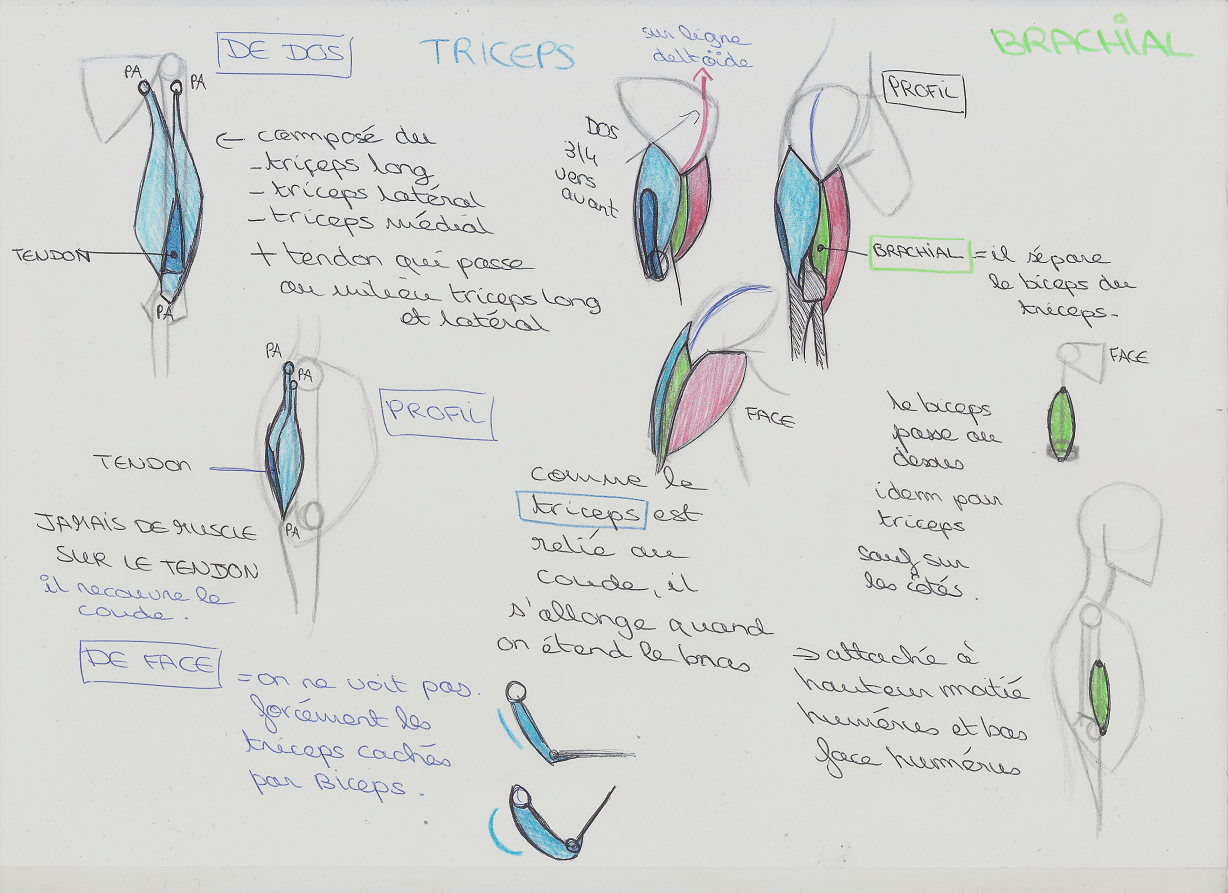 DE DOS
TRICEPS
BRACHIAL
PA
PA
← composé du
- triceps long
- triceps latéral
- triceps médial
+ tendon qui passe
au milieu triceps long
et latéral
TENDON
PA
sur ligne
deltoïde
DOS
3/4
vers
avant
PROFIL
BRACHIAL = il sépare
le biceps du
triceps.
FACE
PA
PA
PROFIL
TENDON
PA
JAMAIS DE MUSCLE
SUR LE TENDON
il recouvre le
coude.
FACE
le biceps
passe au
dessus
idem pour
triceps
sauf sur
les côtés.
comme le
triceps est
relié au
coude, il
s'allonge quand
on étend le bras
DE FACE
= on ne voit pas
forcément les
triceps cachés
par Biceps.
⇒ attaché à
hauteur moitié
humérus et bas
face humérus